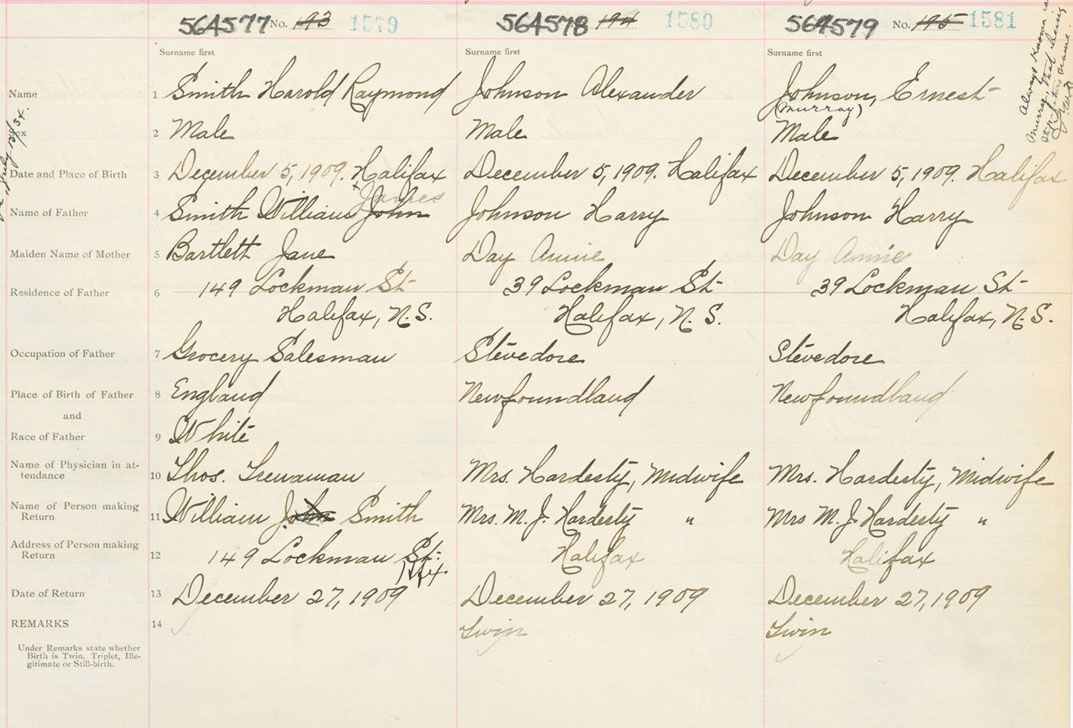 564577 No. 193 1579 564578 194 1580 564579 No. 195 1581
Surname first Surname first Surname first
Name 1 Smith Harold Raymond Johnson Alexander Johnson, Ernest
(Murray)
Always Known as
Murray, that being
name
2 Male Male Male
July
Date and Place of Birth 3 December 5, 1909. Halifax December 5, 1909. Halifax December 5, 1909. Halifax
James
Name of Father 4 Smith William John Johnson Harry Johnson Harry
Maiden Name of Mother 5 Bartlett Jane Day Annie Day Annie
Residence of Father 6 149 Lockman St 39 Lockman St 39 Lockman St
Halifax, N.S. Halifax, N.S. Halifax, N.S.
Occupation of Father 7 Grocery Salesman Stevedore Stevedore
Place of Birth of Father 8 England Newfoundland Newfoundland
and
Race of Father 9 White
Name of Physician in at-
tendance 10 Thos. Trenaman Mrs. Hardesty, Midwife Mrs. Hardesty, Midwife
Name of Person making
Return 11 William John Smith Mrs. M. J. Hardesty " Mrs M. J. Hardesty "
Address of Person making
Return 12 149 Lockman St. Halifax Halifax
Hfx.
Date of Return 13 December 27, 1909 December 27, 1909 December 27, 1909
REMARKS 14 Twin Twin
Under Remarks state whether
Birth is Twin, Triplet, Ille-
gitimate or Still-birth.